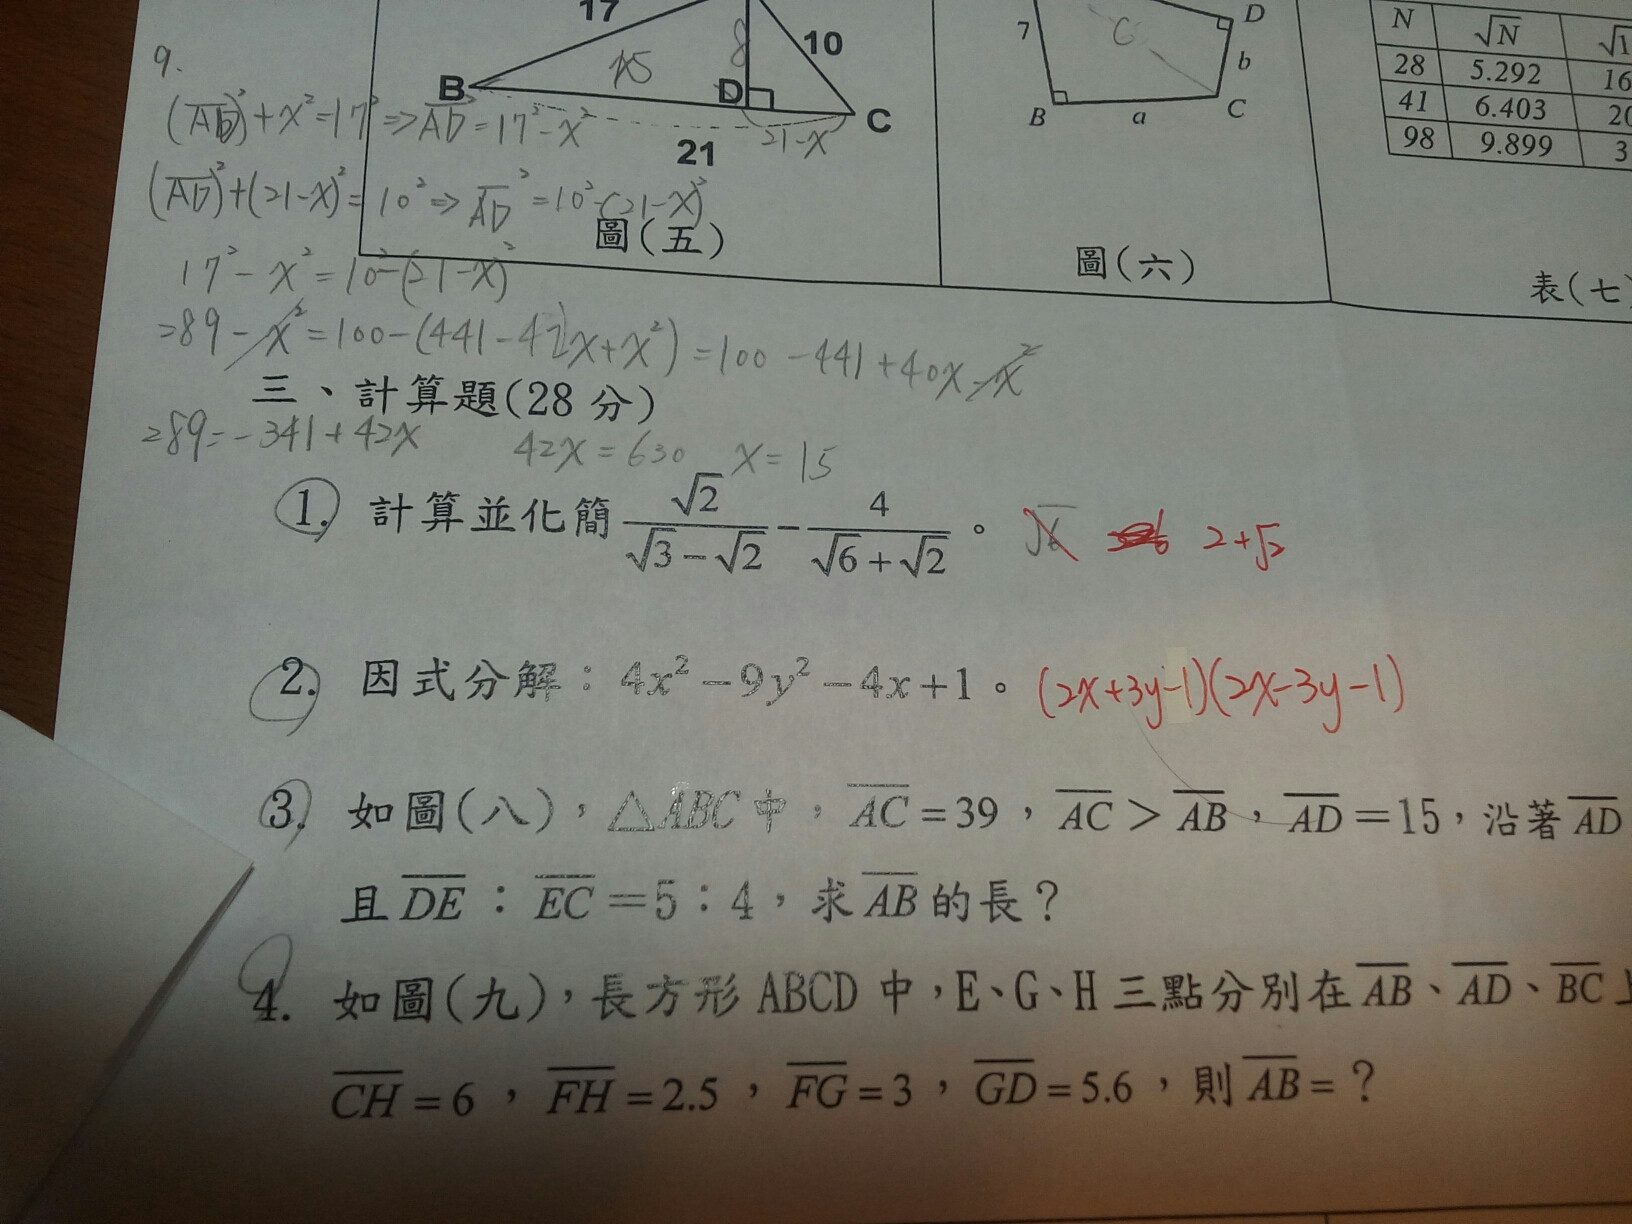 17
8
10
15
B
D
C
21-x
21
圖(五)
7
D
b
B
a
C
圖(六)
N √N
28 5.292 16
41 6.403
98 9.899 3
表(七)
9.
(AD)²+x²=17²⇒AD²=17²-x²
(AD)²+(21-x)²=10²⇒AD²=10²-(21-x)²
17²-x²=10²-(21-x)²
289-x²=100-(441-42x+x²)=100-441+40x-x²
289=-341+42x 42x=630 x=15
三、計算題(28 分)
1. 計算並化簡 √2/(√3-√2) - 4/(√6+√2)。 2+√2
2. 因式分解:4x²-9y²-4x+1。(2x+3y-1)(2x-3y-1)
3. 如圖(八),△ABC中,AC=39,AC>AB,AD=15,沿著AD
且DE:EC=5:4,求AB的長?
4. 如圖(九),長方形 ABCD 中,E、G、H 三點分別在AB、AD、BC上
CH=6,FH=2.5,FG=3,GD=5.6,則AB=?